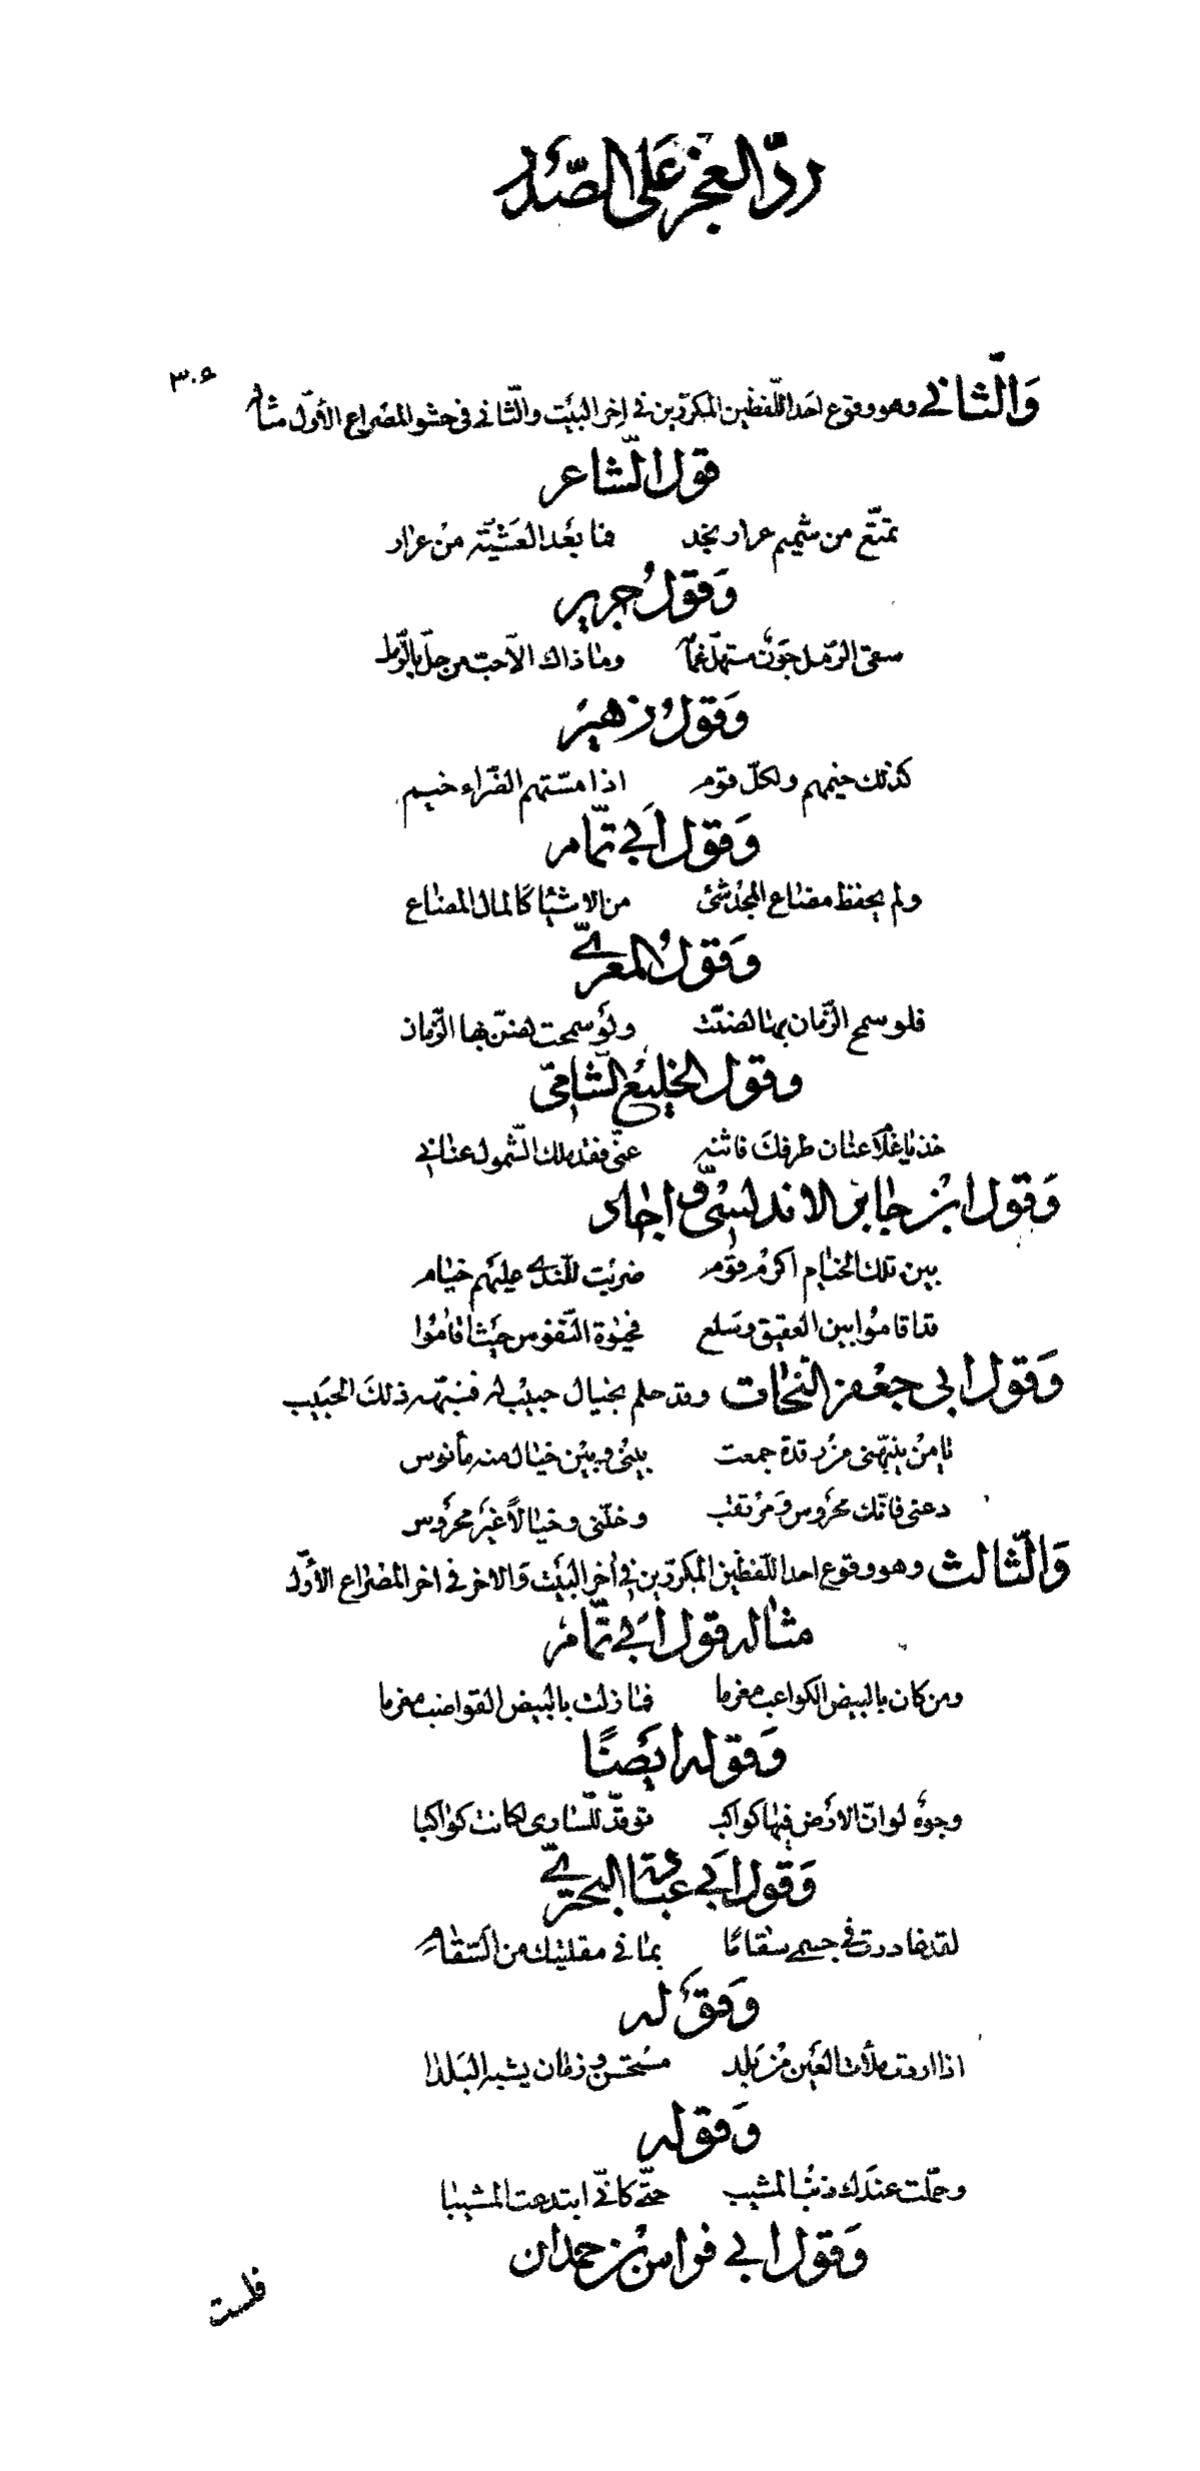 ردّ العجز على الصدر
٣٠٤
وَالثّاني وهو وقوع احَد اللّفظين المكررّين في اخِر البيَت والثّاني فى حشو المصْراع الأوّل مثاله
قول الشّاعر
تمتّع من شميم عرار نجد فما بعْد العَشيّة منْ عرار
وَقولُ جرير
سقى الرّمل جَونٌ مستهلّ غمامه وما ذاك الّا حبّ من حلّ بالرّمل
وَقولُ زهيْر
كذلك خيمهم ولكلّ قوم اذا مسّتهم الضّراء خيم
وَقول أبي تمّام
ولم يحفظ مضاع المجْد شئ من الاشيْا كالمال المضاع
وَقولُ المعرّي
فلو سمح الزّمان بها لضنّت ولَو سمحت لضنّ بها الزّمان
وقول الخليْع الشّاميّ
خذ يا غلام عنان طرفكَ فاثنه عنّي فقد ملك الشّمول عناني
وَقول ابْن جابر الاندلسْيّ واجاد
بين تلك الخيام اكرمُ قوْم ضربْت للنّدى عليَهم خيام
قد اقامُوا بين العقيق وسلع فحيٰوة النّفوس حيَث اقامُوا
وَقول ابي جعْفر النحّات وقد حلم بخيال حبيْب له فنبّهه ذلكَ الحبيَب
يا مَنْ ينبّهني منْ رقدة جمعت بيْني وبيْن خيال منه مأنوس
دعني فانّك محرُوس وَمرْتقب وخلّني وخيالاً غيَر محرَوس
وَالثّالث وهو وقوع احد اللّفظين المكررّين في أخر البيَت وَالاخر في اخر المصْراع الأوّل
مثاله قول ابَي تمّام
ومن كان بالبيض الكواعب مغرما فما زلت بالبيض القواضب مغرما
وَقوله ايَضًا
وجوهٌ لو انّ الارَض فيها كواكب توقّد للسّاري لكانت كواكبا
وَقول ابَي عبادة البحتريّ
لقد غادرت في جسمي سقامًا بما في مقلتيْك من السّقام
وَقوَله
اذا اردت ملأت العَين منْ بَلد مستحْسن وزمان يشبه البَلدا
وَقوله
وحمّلت عندَك ذنْب المشيب حتّى كانّي ابتدعت المشيبا
وَقول ابي فراس بْن حمدان
فلست